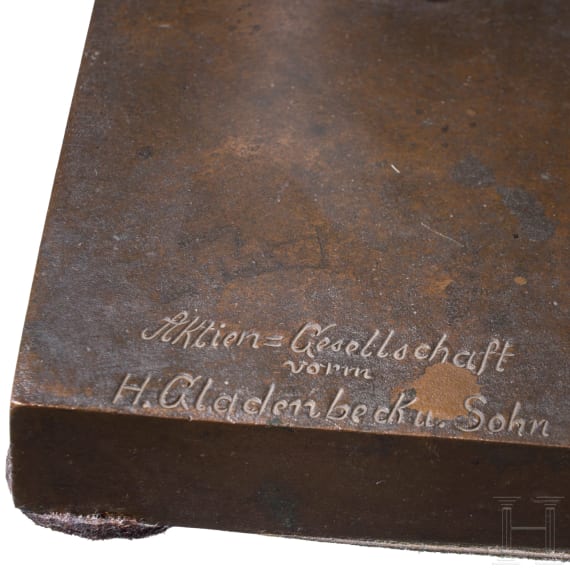 Aktien=Gesellschaft
vorm
H. Gladenbeck u. Sohn
H